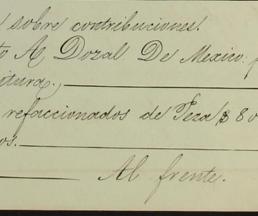 sobre contribuciones.
A. Dozal De Mexico.
itura.
refaccionados de Peza $ 80
os.
Al frente.